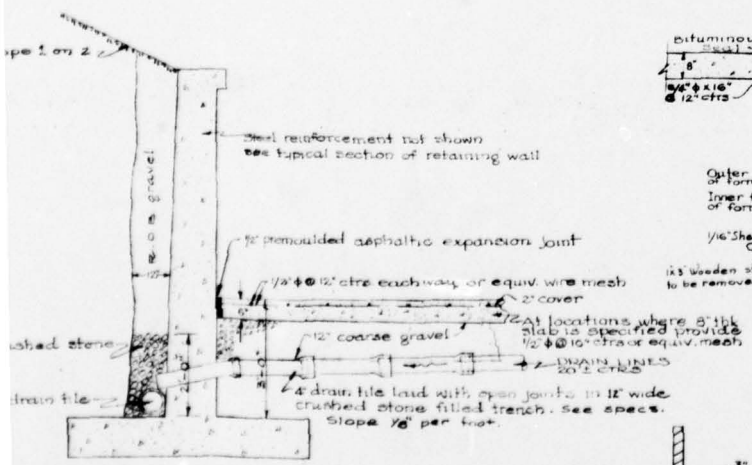 ope 1 on 2
Steel reinforcement not shown
see typical section of retaining wall
R.O.B. gravel
12"
1/2" premoulded asphaltic expansion joint
1/4" ϕ @ 12" ctrs each way or equiv. wire mesh
2" cover
6"
At locations where 8" thk
slab is specified provide
1/2" ϕ @ 10" ctrs or equiv. mesh
12" coarse gravel
ushed stone
DRAIN LINES
20' ± CTRS
drain tile
4" drain tile laid with open joints in 12" wide
crushed stone filled trench. See specs.
Slope 1/8" per foot.
Bituminou
Seal
8"
3/4" ϕ x 16"
@ 12" ctrs
Outer
of form
Inner
of form
1/16" She
1x3 Wooden s
to be remove
3"